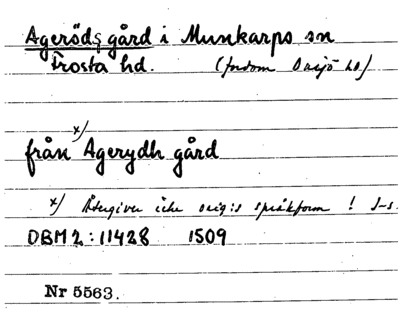 Ageröds gård i Munkarps sn
Frosta hd. (fordom Onsjö hd)
x)
från Agerydh gård
x) Återgiver icke orig:s språkform ! J-s.
DBM 2:11428 1509
Nr 5563.